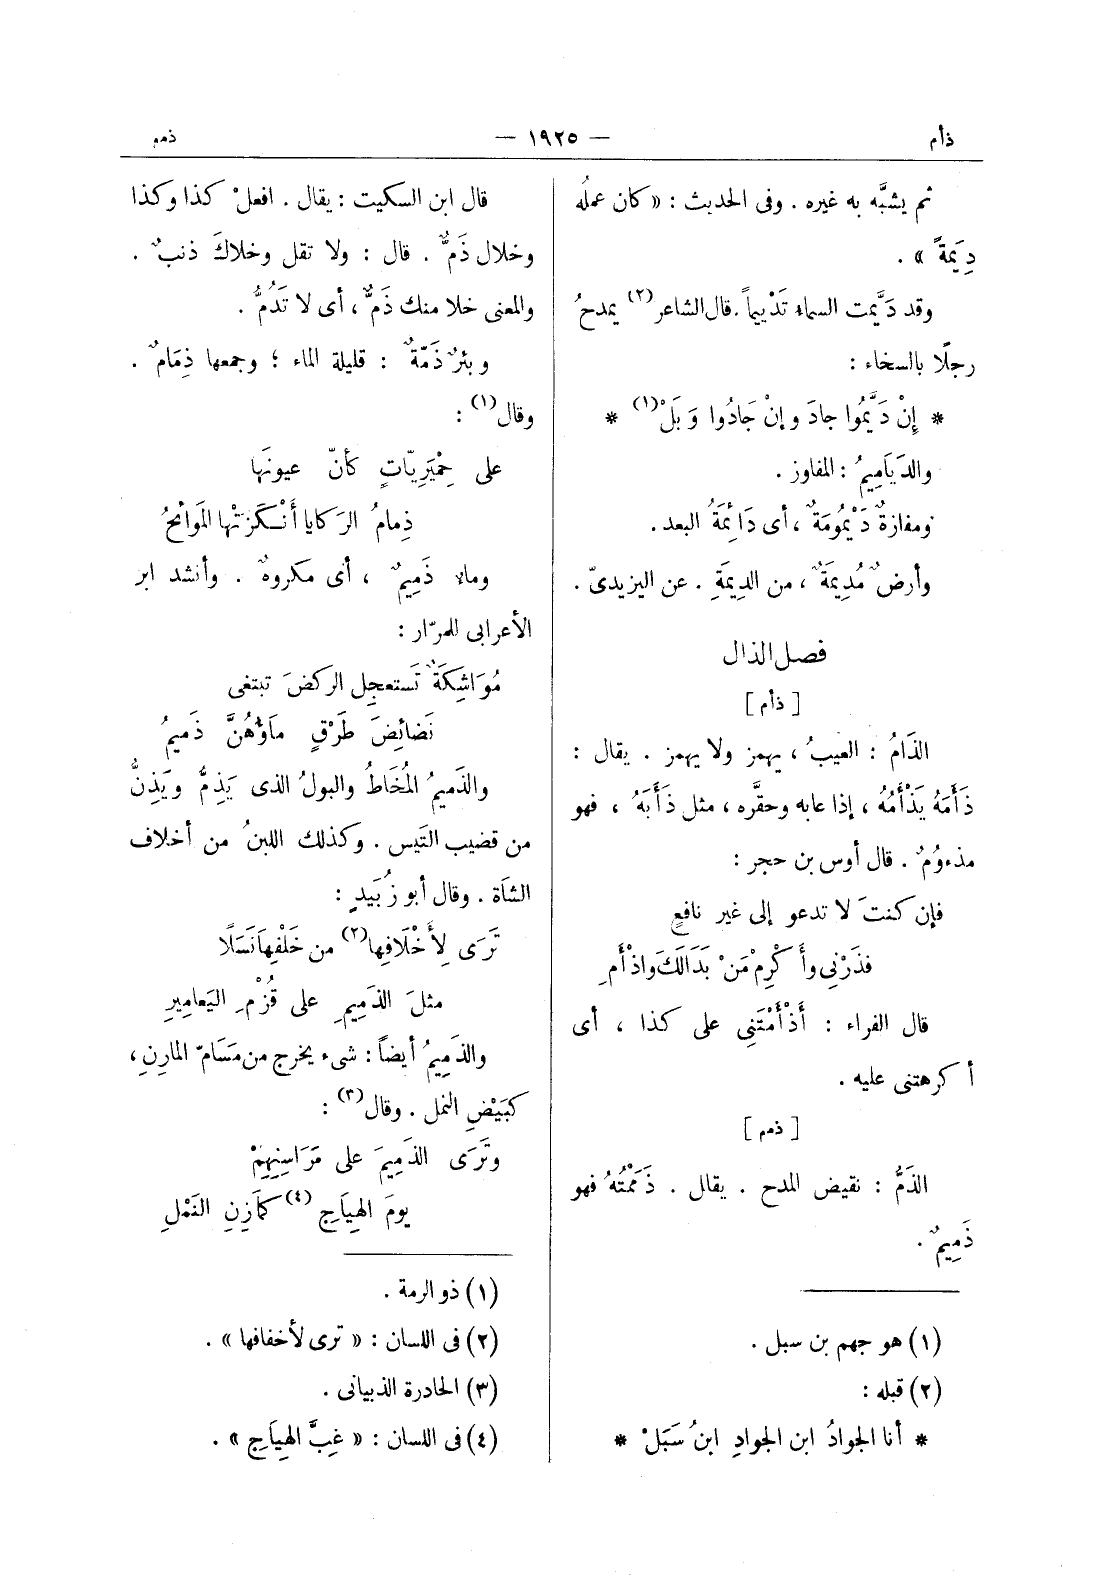 ذأم — ١٩٢٥ — ذمم
ثم يشبَّه به غيره . وفى الحديث : « كان عملُه
دِيَمةً » .
وقد دَيَّمت السماء تَدْيِيماً . قال الشاعر (٢) يمدحُ
رجلًا بالسخاء :
* إِنْ دَيَّمُوا جادَ وإنْ جَادُوا وَبَلْ (١) *
والدَيَامِيمُ : المفاوز .
ومفازةٌ دَيْمُومَةٌ ، أى دَائِمَةُ البعد .
وأرضٌ مُدِيمَةٌ ، من الدِيمَةِ . عن اليزيدىّ .
فصل الذال
[ ذأم ]
الذَامُ : العيبُ ، يهمز ولا يهمز . يقال :
ذَأَمَهُ يَذْأَمُهُ ، إذا عابه وحقَّره ، مثل ذَأَبَهُ ، فهو
مذءوُمٌ . قال أوس بن حجر :
فإن كنتَ لا تدعو إلى غير نافعٍ
فذَرْنِى وأَكْرِمْ مَنْ بَدَا لَكَ واذْأَمِ
قال الفراء : أَذْأَمْتَنِى على كذا ، أى
أكرهتنى عليه .
[ ذمم ]
الذَمُّ : نقيض المدح . يقال . ذَمَمْتُهُ فهو
ذَمِيمٌ .
(١) هو جهم بن سبل .
(٢) قبله :
* أنا الجوادُ ابن الجوادِ ابنُ سَبَلْ *
قال ابن السكيت : يقال . افعلْ كذا وكذا
وخلال ذَمٌّ . قال : ولا تقل وخلاكَ ذنبٌ .
والمعنى خلا منك ذَمٌّ ، أى لا تَذُمُّ .
وبئرٌ ذَمّةٌ : قليلة الماء ؛ وجمعها ذِمَامٌ .
وقال (١) :
على حِمْيَرِيّاتٍ كأنّ عيونَها
ذِمامُ الرَكايا أَنْكَزَتْها المَوائحُ
وماء ذَمِيمٌ ، أى مكروهٌ . وأنشد ابن
الأعرابى للمرّار :
مُوَاشِكَةٌ تَستعجِل الركضَ تبتغى
نَضائِضَ طَرْقٍ مَاؤُهُنَّ ذَميمُ
والذَميمُ المُخَاطُ والبولُ الذى يَذِمُّ ويَذِنُّ
من قضيب التَيس . وكذلك اللبنُ من أخلاف
الشاة . وقال أبو زُبَيدٍ :
تَرَى لِأَخْلَافِها (٢) من خَلْفِها نَسَلًا
مثلَ الذَمِيمِ على قُزْمِ اليَعامِيرِ
والذَمِيمُ أيضاً : شىء يخرج من مَسَامّ المارِنِ ،
كبَيْضِ النمل . وقال (٣) :
وتَرَى الذَمِيمَ على مَرَاسِنِهِمْ
يومَ الهِيَاجِ (٤) كمَازِنِ النَمْلِ
(١) ذو الرمة .
(٢) فى اللسان : « ترى لأخفافها » .
(٣) الحادرة الذبيانى .
(٤) فى اللسان : « غِبَّ الهِيَاجِ » .